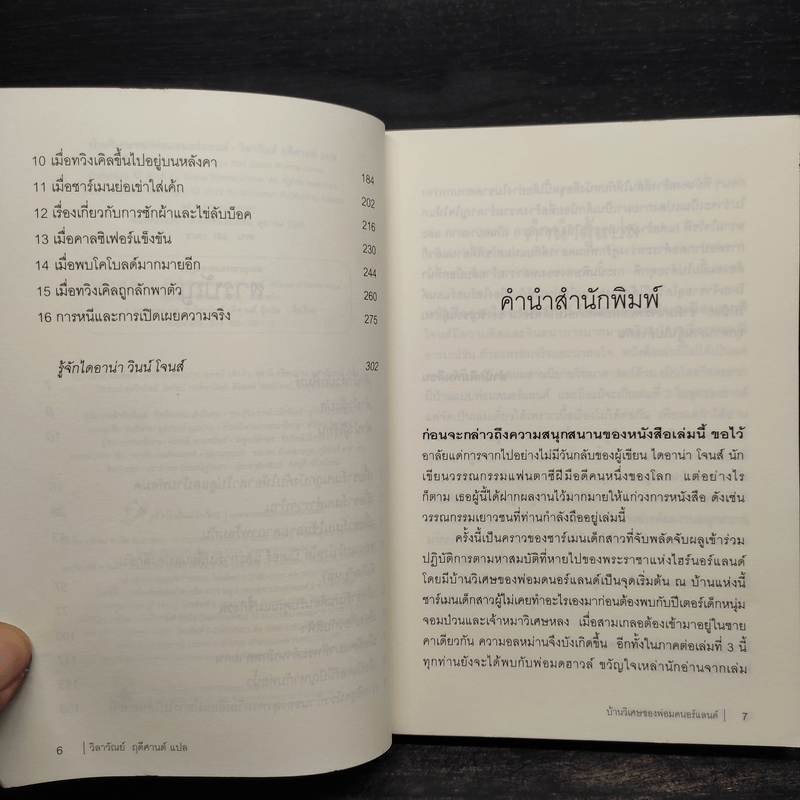 10 เมื่อทวิงเคิลขึ้นไปอยู่บนหลังคา 184
11 เมื่อชาร์เมนย่อเข่าใส่เค้ก 202
12 เรื่องเกี่ยวกับการซักผ้าและไข่ลับบ็อค 216
13 เมื่อคาลซิเฟอร์แข็งขัน 230
14 เมื่อพบโคโบลด์มากมายอีก 244
15 เมื่อทวิงเคิลถูกลักพาตัว 260
16 การหนีและการเปิดเผยความจริง 275
รู้จักไดอาน่า วินน์ โจนส์ 302
6 | วิลาวัณย์ ฤดีศานต์ แปล
คำนำสำนักพิมพ์
ก่อนจะกล่าวถึงความสนุกสนานของหนังสือเล่มนี้ ขอไว้
อาลัยแด่การจากไปอย่างไม่มีวันกลับของผู้เขียน ไดอาน่า โจนส์ นัก
เขียนวรรณกรรมแฟนตาซีฝีมือดีคนหนึ่งของโลก แต่อย่างไร
ก็ตาม เธอผู้นี้ได้ฝากผลงานไว้มากมายให้แก่วงการหนังสือ ดังเช่น
วรรณกรรมเยาวชนที่ท่านกำลังถืออยู่เล่มนี้
ครั้งนี้เป็นคราวของชาร์เมนเด็กสาวที่จับพลัดจับผลูเข้าร่วม
ปฏิบัติการตามหาสมบัติที่หายไปของพระราชาแห่งไฮร์นอร์แลนด์
โดยมีบ้านวิเศษของพ่อมดนอร์แลนด์เป็นจุดเริ่มต้น ณ บ้านแห่งนี้
ชาร์เมนเด็กสาวผู้ไม่เคยทำอะไรเองมาก่อนต้องพบกับปีเตอร์เด็กหนุ่ม
จอมป่วนและเจ้าหมาวิเศษหลง เมื่อสามเกลอต้องเข้ามาอยู่ในชาย
คาเดียวกัน ความอลหม่านจึงบังเกิดขึ้น อีกทั้งในภาคต่อเล่มที่ 3 นี้
ทุกท่านยังจะได้พบกับพ่อมดฮาวล์ ขวัญใจเหล่านักอ่านจากเล่ม
บ้านวิเศษของพ่อมดนอร์แลนด์ | 7